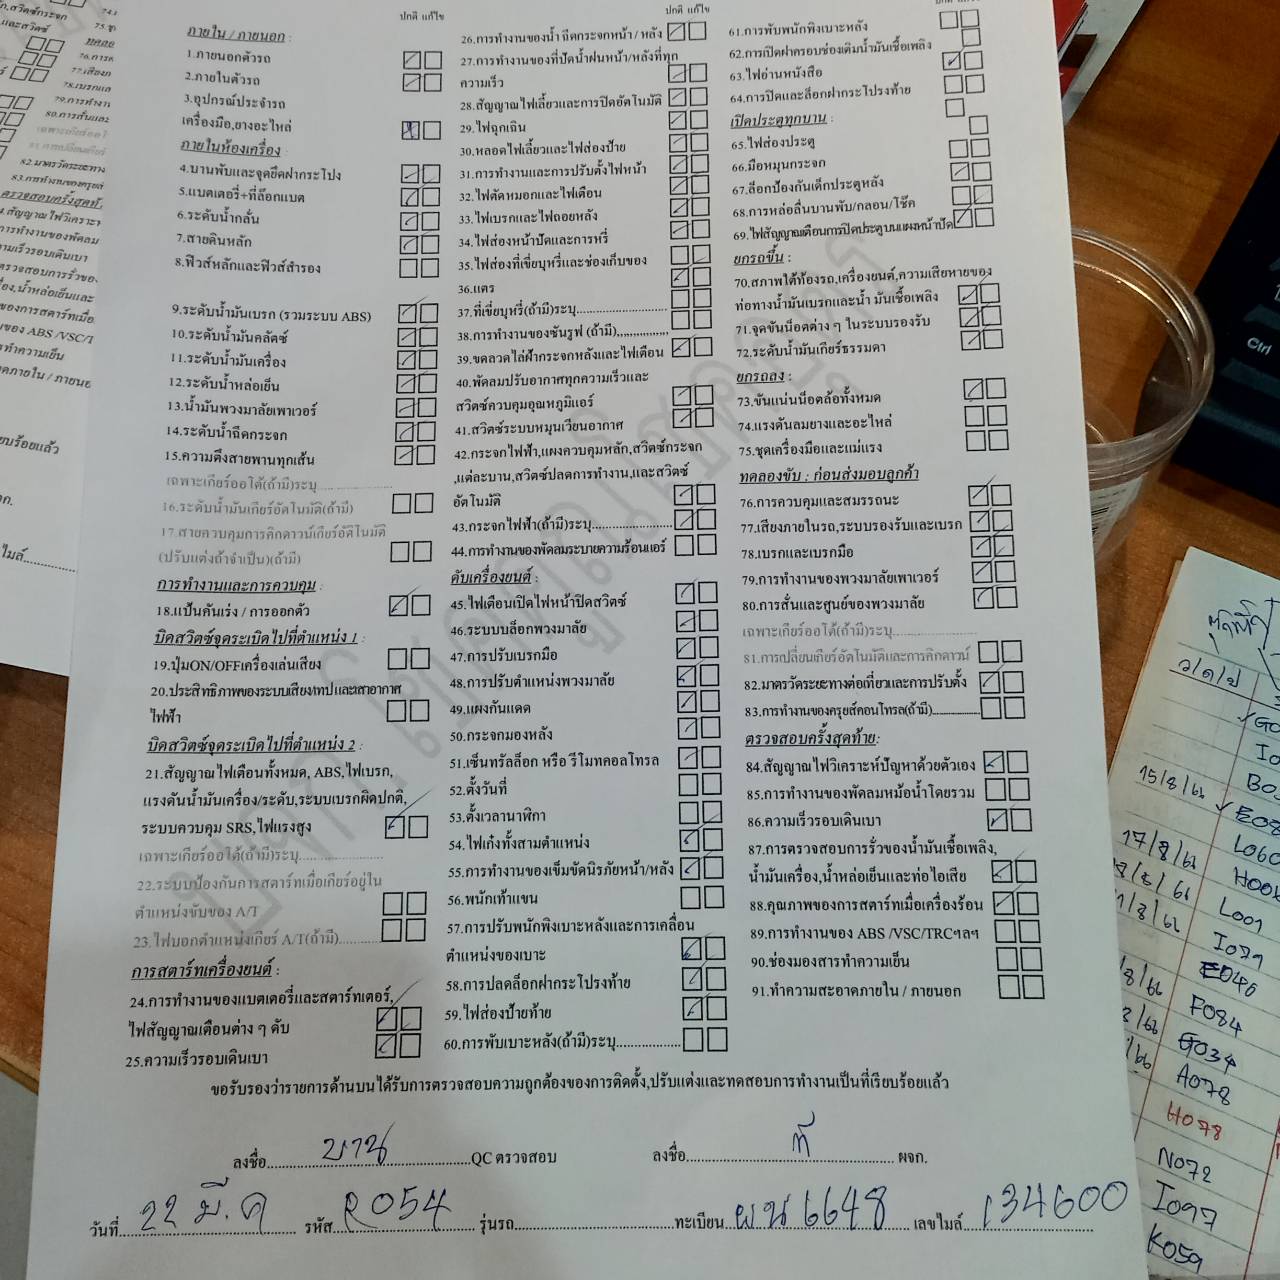 ปกติ แก้ไข
ภายใน / ภายนอก :
1.ภายนอกตัวรถ
2.ภายในตัวรถ
3.อุปกรณ์ประจำรถ
เครื่องมือ,ยางอะไหล่
ภายในห้องเครื่อง :
4.บานพับและจุดยึดฝากระโปง
5.แบตเตอรี่+ที่ล็อกแบต
6.ระดับน้ำกลั่น
7.สายดินหลัก
8.ฟิวส์หลักและฟิวส์สำรอง
9.ระดับน้ำมันเบรก (รวมระบบ ABS)
10.ระดับน้ำมันคลัตช์
11.ระดับน้ำมันเครื่อง
12.ระดับน้ำหล่อเย็น
13.น้ำมันพวงมาลัยเพาเวอร์
14.ระดับน้ำฉีดกระจก
15.ความตึงสายพานทุกเส้น
เฉพาะเกียร์ออโต้(ถ้ามี)ระบุ
16.ระดับน้ำมันเกียร์อัตโนมัติ(ถ้ามี)
17.สายควบคุมการคิกดาวน์เกียร์อัติโนมัติ
(ปรับแต่งถ้าจำเป็น)(ถ้ามี)
การทำงานและการควบคุม :
18.แป้นคันเร่ง / การออกตัว
บิดสวิตซ์จุดระเบิดไปที่ตำแหน่ง 1 :
19.ปุ่มON/OFFเครื่องเล่นเสียง
20.ประสิทธิภาพของระบบเสียง/เทป และเสาอากาศ
ไฟฟ้า
บิดสวิตซ์จุดระเบิดไปที่ตำแหน่ง 2 :
21.สัญญาณไฟเตือนทั้งหมด, ABS,ไฟเบรก,
แรงดันน้ำมันเครื่อง/ระดับ,ระบบเบรกผิดปกติ,
ระบบควบคุม SRS,ไฟแรงสูง
เฉพาะเกียร์ออโต้(ถ้ามี)ระบุ
22.ระบบป้องกันการสตาร์ทเมื่อเกียร์อยู่ใน
ตำแหน่งขับของ A/T
23.ไฟบอกตำแหน่งเกียร์ A/T(ถ้ามี)
การสตาร์ทเครื่องยนต์ :
24.การทำงานของแบตเตอรี่และสตาร์ทเตอร์,
ไฟสัญญาณเตือนต่าง ๆ ดับ
25.ความเร็วรอบเดินเบา
ปกติ แก้ไข
26.การทำงานของน้ำ ฉีดกระจกหน้า / หลัง
27.การทำงานของที่ปัดน้ำฝนหน้า/หลังที่ทุก
ความเร็ว
28.สัญญาณไฟเลี้ยวและการปิดอัตโนมัติ
29.ไฟฉุกเฉิน
30.หลอดไฟเลี้ยวและไฟส่องป้าย
31.การทำงานและการปรับตั้งไฟหน้า
32.ไฟตัดหมอกและไฟเตือน
33.ไฟเบรกและไฟถอยหลัง
34.ไฟส่องหน้าปัดและการหรี่
35.ไฟส่องที่เขี่ยบุหรี่และช่องเก็บของ
36.แตร
37.ที่เขี่ยบุหรี่(ถ้ามี)ระบุ
38.การทำงานของซันรูฟ (ถ้ามี)
39.ขดลวดไล่ฝ้ากระจกหลังและไฟเตือน
40.พัดลมปรับอากาศทุกความเร็วและ
สวิตซ์ควบคุมอุณหภูมิแอร์
41.สวิตซ์ระบบหมุนเวียนอากาศ
42.กระจกไฟฟ้า,แผงควบคุมหลัก,สวิตซ์กระจก
,แต่ละบาน,สวิตซ์ปลดการทำงาน,และสวิตซ์
อัตโนมัติ
43.กระจกไฟฟ้า(ถ้ามี)ระบุ
44.การทำงานของพัดลมระบายความร้อนแอร์
ดับเครื่องยนต์ :
45.ไฟเตือนเปิดไฟหน้าปิดสวิตซ์
46.ระบบบล็อกพวงมาลัย
47.การปรับเบรกมือ
48.การปรับตำแหน่งพวงมาลัย
49.แผงกันแดด
50.กระจกมองหลัง
51.เซ็นทรัลล็อก หรือ รีโมทคอลโทรล
52.ตั้งวันที่
53.ตั้งเวลานาฬิกา
54.ไฟเก๋งทั้งสามตำแหน่ง
55.การทำงานของเข็มขัดนิรภัยหน้า/หลัง
56.พนักเท้าแขน
57.การปรับพนักพิงเบาะหลังและการเคลื่อน
ตำแหน่งของเบาะ
58.การปลดล็อกฝากระโปรงท้าย
59.ไฟส่องป้ายท้าย
60.การพับเบาะหลัง(ถ้ามี)ระบุ
61.การพับพนักพิงเบาะหลัง
62.การเปิดฝาครอบช่องเติมน้ำมันเชื้อเพลิง
63.ไฟอ่านหนังสือ
64.การปิดและล็อกฝากระโปรงท้าย
เปิดประตูทุกบาน :
65.ไฟส่องประตู
66.มือหมุนกระจก
67.ล็อกป้องกันเด็กประตูหลัง
68.การหล่อลื่นบานพับ/กลอน/โช๊ค
69.ไฟสัญญาณเตือนการปิดประตูบนแผงหน้าปัด
ยกรถขึ้น :
70.สภาพใต้ท้องรถ,เครื่องยนต์,ความเสียหายของ
ท่อทางน้ำมันเบรกและน้ำ มันเชื้อเพลิง
71.จุดขันน็อตต่าง ๆ ในระบบรองรับ
72.ระดับน้ำมันเกียร์ธรรมดา
ยกรถลง :
73.ขันแน่นน็อตล้อทั้งหมด
74.แรงดันลมยางและอะไหล่
75.ชุดเครื่องมือและแม่แรง
ทดลองขับ : ก่อนส่งมอบลูกค้า
76.การควบคุมและสมรรถนะ
77.เสียงภายในรถ,ระบบรองรับและเบรก
78.เบรกและเบรกมือ
79.การทำงานของพวงมาลัยเพาเวอร์
80.การสั่นและศูนย์ของพวงมาลัย
เฉพาะเกียร์ออโต้(ถ้ามี)ระบุ
81.การเปลี่ยนเกียร์อัตโนมัติและการคิกดาวน์
82.มาตรวัดระยะทางต่อเที่ยวและการปรับตั้ง
83.การทำงานของครุยส์คอนโทรล(ถ้ามี)
ตรวจสอบครั้งสุดท้าย:
84.สัญญาณไฟวิเคราะห์ปัญหาด้วยตัวเอง
85.การทำงานของพัดลมหม้อน้ำโดยรวม
86.ความเร็วรอบเดินเบา
87.การตรวจสอบการรั่วของน้ำมันเชื้อเพลิง,
น้ำมันเครื่อง,น้ำหล่อเย็นและท่อไอเสีย
88.คุณภาพของการสตาร์ทเมื่อเครื่องร้อน
89.การทำงานของ ABS /VSC/TRCฯลฯ
90.ช่องมองสารทำความเย็น
91.ทำความสะอาดภายใน / ภายนอก
ขอรับรองว่ารายการด้านบนได้รับการตรวจสอบความถูกต้องของการติดตั้ง,ปรับแต่งและทดสอบการทำงานเป็นที่เรียบร้อยแล้ว
ลงชื่อ บาน QC ตรวจสอบ ลงชื่อ ผจก.
วันที่ 22 มี.ค รหัส R054 รุ่นรถ ทะเบียน ผน 6648 เลขไมล์ 134600
Ctrl
ว/ด/ป
15/8/66
E08
17/8/66
L060
L001
I079
E046
F084
G034
A078
H078
N072
I097
K059